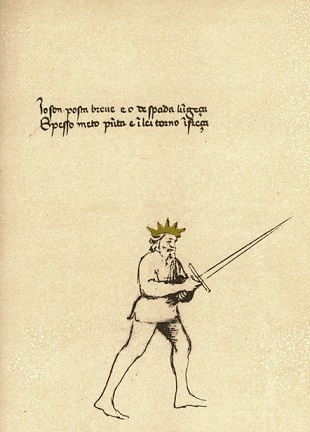 Io son posta breue e o de spada lūgeça
Spesso meto pūta e ī lei torno ī freça